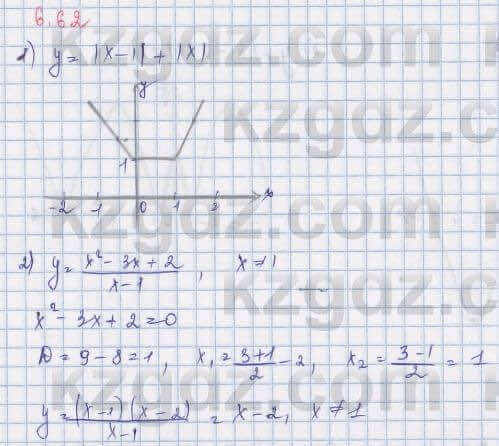 6.62
1) y = |x-1| + |x|
y
1
-2 -1 0 1 2 x
2) y = \frac{x^2 - 3x + 2}{x-1}, x ≠ 1
x^2 - 3x + 2 = 0
D = 9 - 8 = 1, x_1 = \frac{3+1}{2} - 2, x_2 = \frac{3-1}{2} = 1
y = \frac{(x-1)(x-2)}{x-1} = x-2, x ≠ 1
kzgdz.com